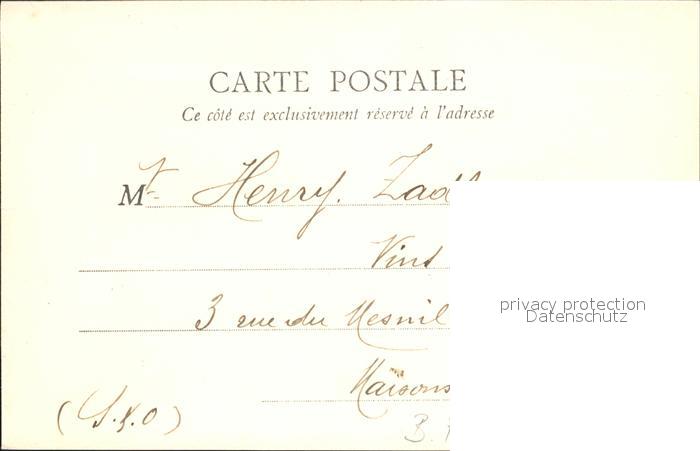 CARTE POSTALE
Ce côté est exclusivement réservé à l'adresse
Mr Henry. Zad
Vins
3 rue du Mesnil
Maisons
(S.&.O)
B.
privacy protection
Datenschutz